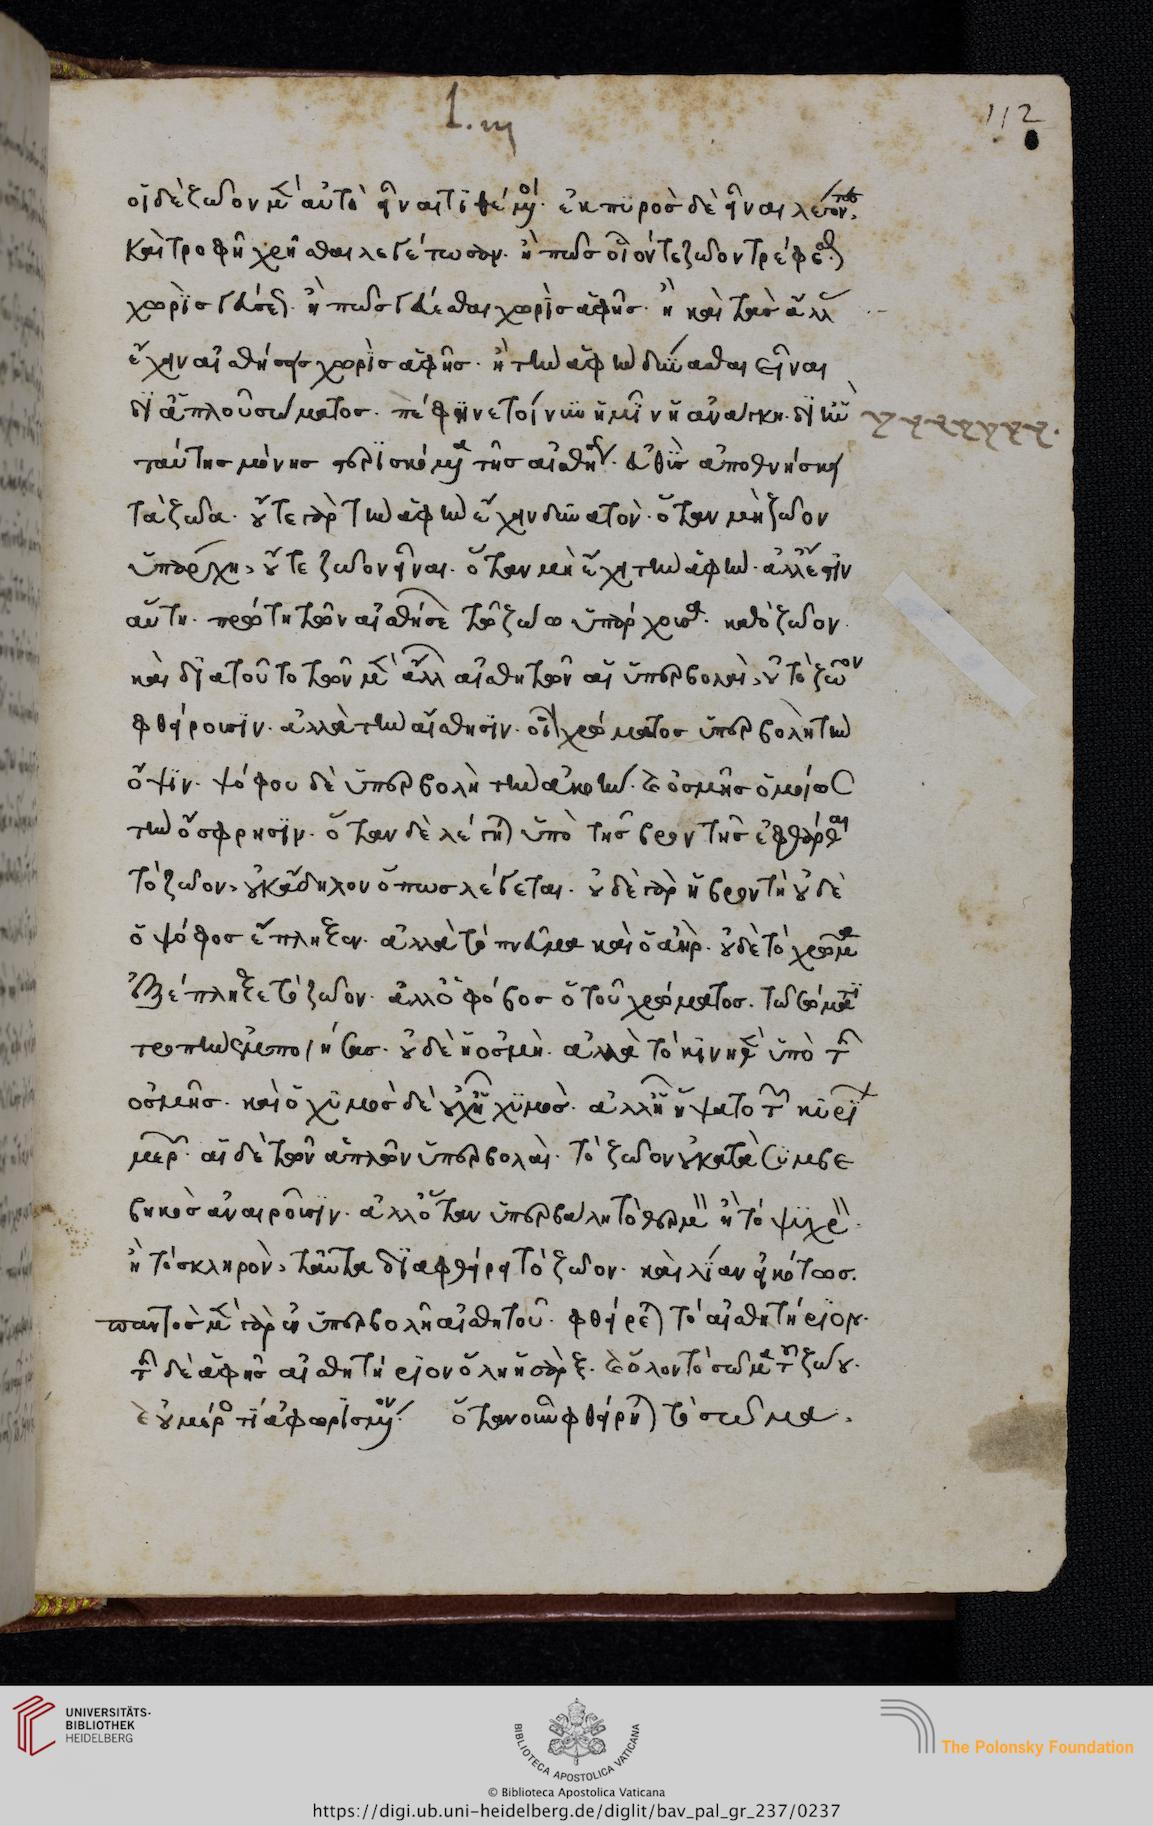 112
οἱ δὲ ζῶον μὲν αὐτὸ εἶναι τιθέμενοι. ἐκ πυρὸς δὲ εἶναι λέγοντες,
καὶ τροφῇ χρῆσθαι λεγέτωσαν. ἢ πῶς οἷόν τε ζῶον τρέφεσθαι
χωρὶς γεύσεως. ἢ πῶς γεύεσθαι χωρὶς ἁφῆς. ἢ καὶ τὰς ἄλλας
ἔχειν αἰσθήσεις χωρὶς ἁφῆς. ἢ τὴν ἁφὴν δύνασθαι εἶναι
δι' ἁπλοῦ σώματος. πέφηνε τοίνυν ἡμῖν ἡ ἀνάγκη. δι' ἣν
ταύτης μόνης στερισκόμενα τῆς αἰσθήσεως. εὐθὺς ἀποθνήσκει
τὰ ζῶα. οὔτε γὰρ τὴν ἁφὴν ἔχειν δυνατὸν. ὅταν μὴ ζῶον
ὑπάρχη, οὔτε ζῶον εἶναι. ὅταν μὴ ἔχη τὴν ἁφήν. ἀλλ' ἔστιν
αὕτη. πρώτη τῶν αἰσθήσεων τῶ ζώω ὑπάρχουσα. καθὸ ζῶον.
καὶ διατοῦτο τῶν μὲν ἄλλων αἰσθητῶν αἱ ὑπερβολαὶ, οὐ τὸ ζῶον
φθείρουσιν. ἀλλὰ τὴν αἴσθησιν. οἷον χρώματος ὑπερβολὴ τὴν
ὄψιν. ψόφου δὲ ὑπερβολὴ τὴν ἀκοήν. καὶ ὀσμῆς ὁμοίως
τὴν ὄσφρησιν. ὅταν δὲ λέγηται ὑπὸ τῆς βροντῆς ἐφθάρθαι
τὸ ζῶον, οὐκ ἄδηλον ὅπως λέγεται. οὐδὲ γὰρ ἡ βροντὴ οὐδὲ
ὁ ψόφος ἔπληξεν. ἀλλὰ τὸ πνεῦμα καὶ ὁ ἀήρ. οὐδὲ τὸ χρῶμα
ἐξέπληξε τὸ ζῶον. ἀλλ' ὁ φόβος ὁ τοῦ χρώματος. τῶ σώματι
τροπὴν ἐμποιήσας. οὐδὲ ἡ ὀσμὴ. ἀλλὰ τὸ κινηθὲν ὑπὸ τῆς
ὀσμῆς. καὶ ὁ χυμὸς δὲ οὐχ ἧ χυμὸς. ἀλλ' ἧ ἥψατο τῶν κυρίων
μερῶν. αἱ δὲ τῶν ἁπλῶν ὑπερβολαὶ. τὸ ζῶον οὐ κατὰ συμβε
βηκὸς ἀναιροῦσιν. ἀλλ' ὅταν ὑπερβάλη τὸ θερμὸν ἢ τὸ ψυχρὸν.
ἢ τὸ σκληρὸν, ταῦτα διαφθείρει τὸ ζῶον. καὶ λίαν εἰκότως.
παντὸς μὲν γὰρ ἐν ὑπερβολῆ αἰσθητοῦ. φθείρεται τὸ αἰσθητήριον.
τῆς δὲ ἁφῆς αἰσθητήριον ὅλη ἡ σὰρξ. καὶ ὅλον τὸ σῶμα τοῦ ζώου.
καὶ οὐ μέρος τι ἀφωρισμένον. ὅταν οὖν φθείρηται τὸ σῶμα.
UNIVERSITÄTS-
BIBLIOTHEK
HEIDELBERG
BIBLIOTECA APOSTOLICA VATICANA
The Polonsky Foundation
© Biblioteca Apostolica Vaticana
https://digi.ub.uni-heidelberg.de/diglit/bav_pal_gr_237/0237